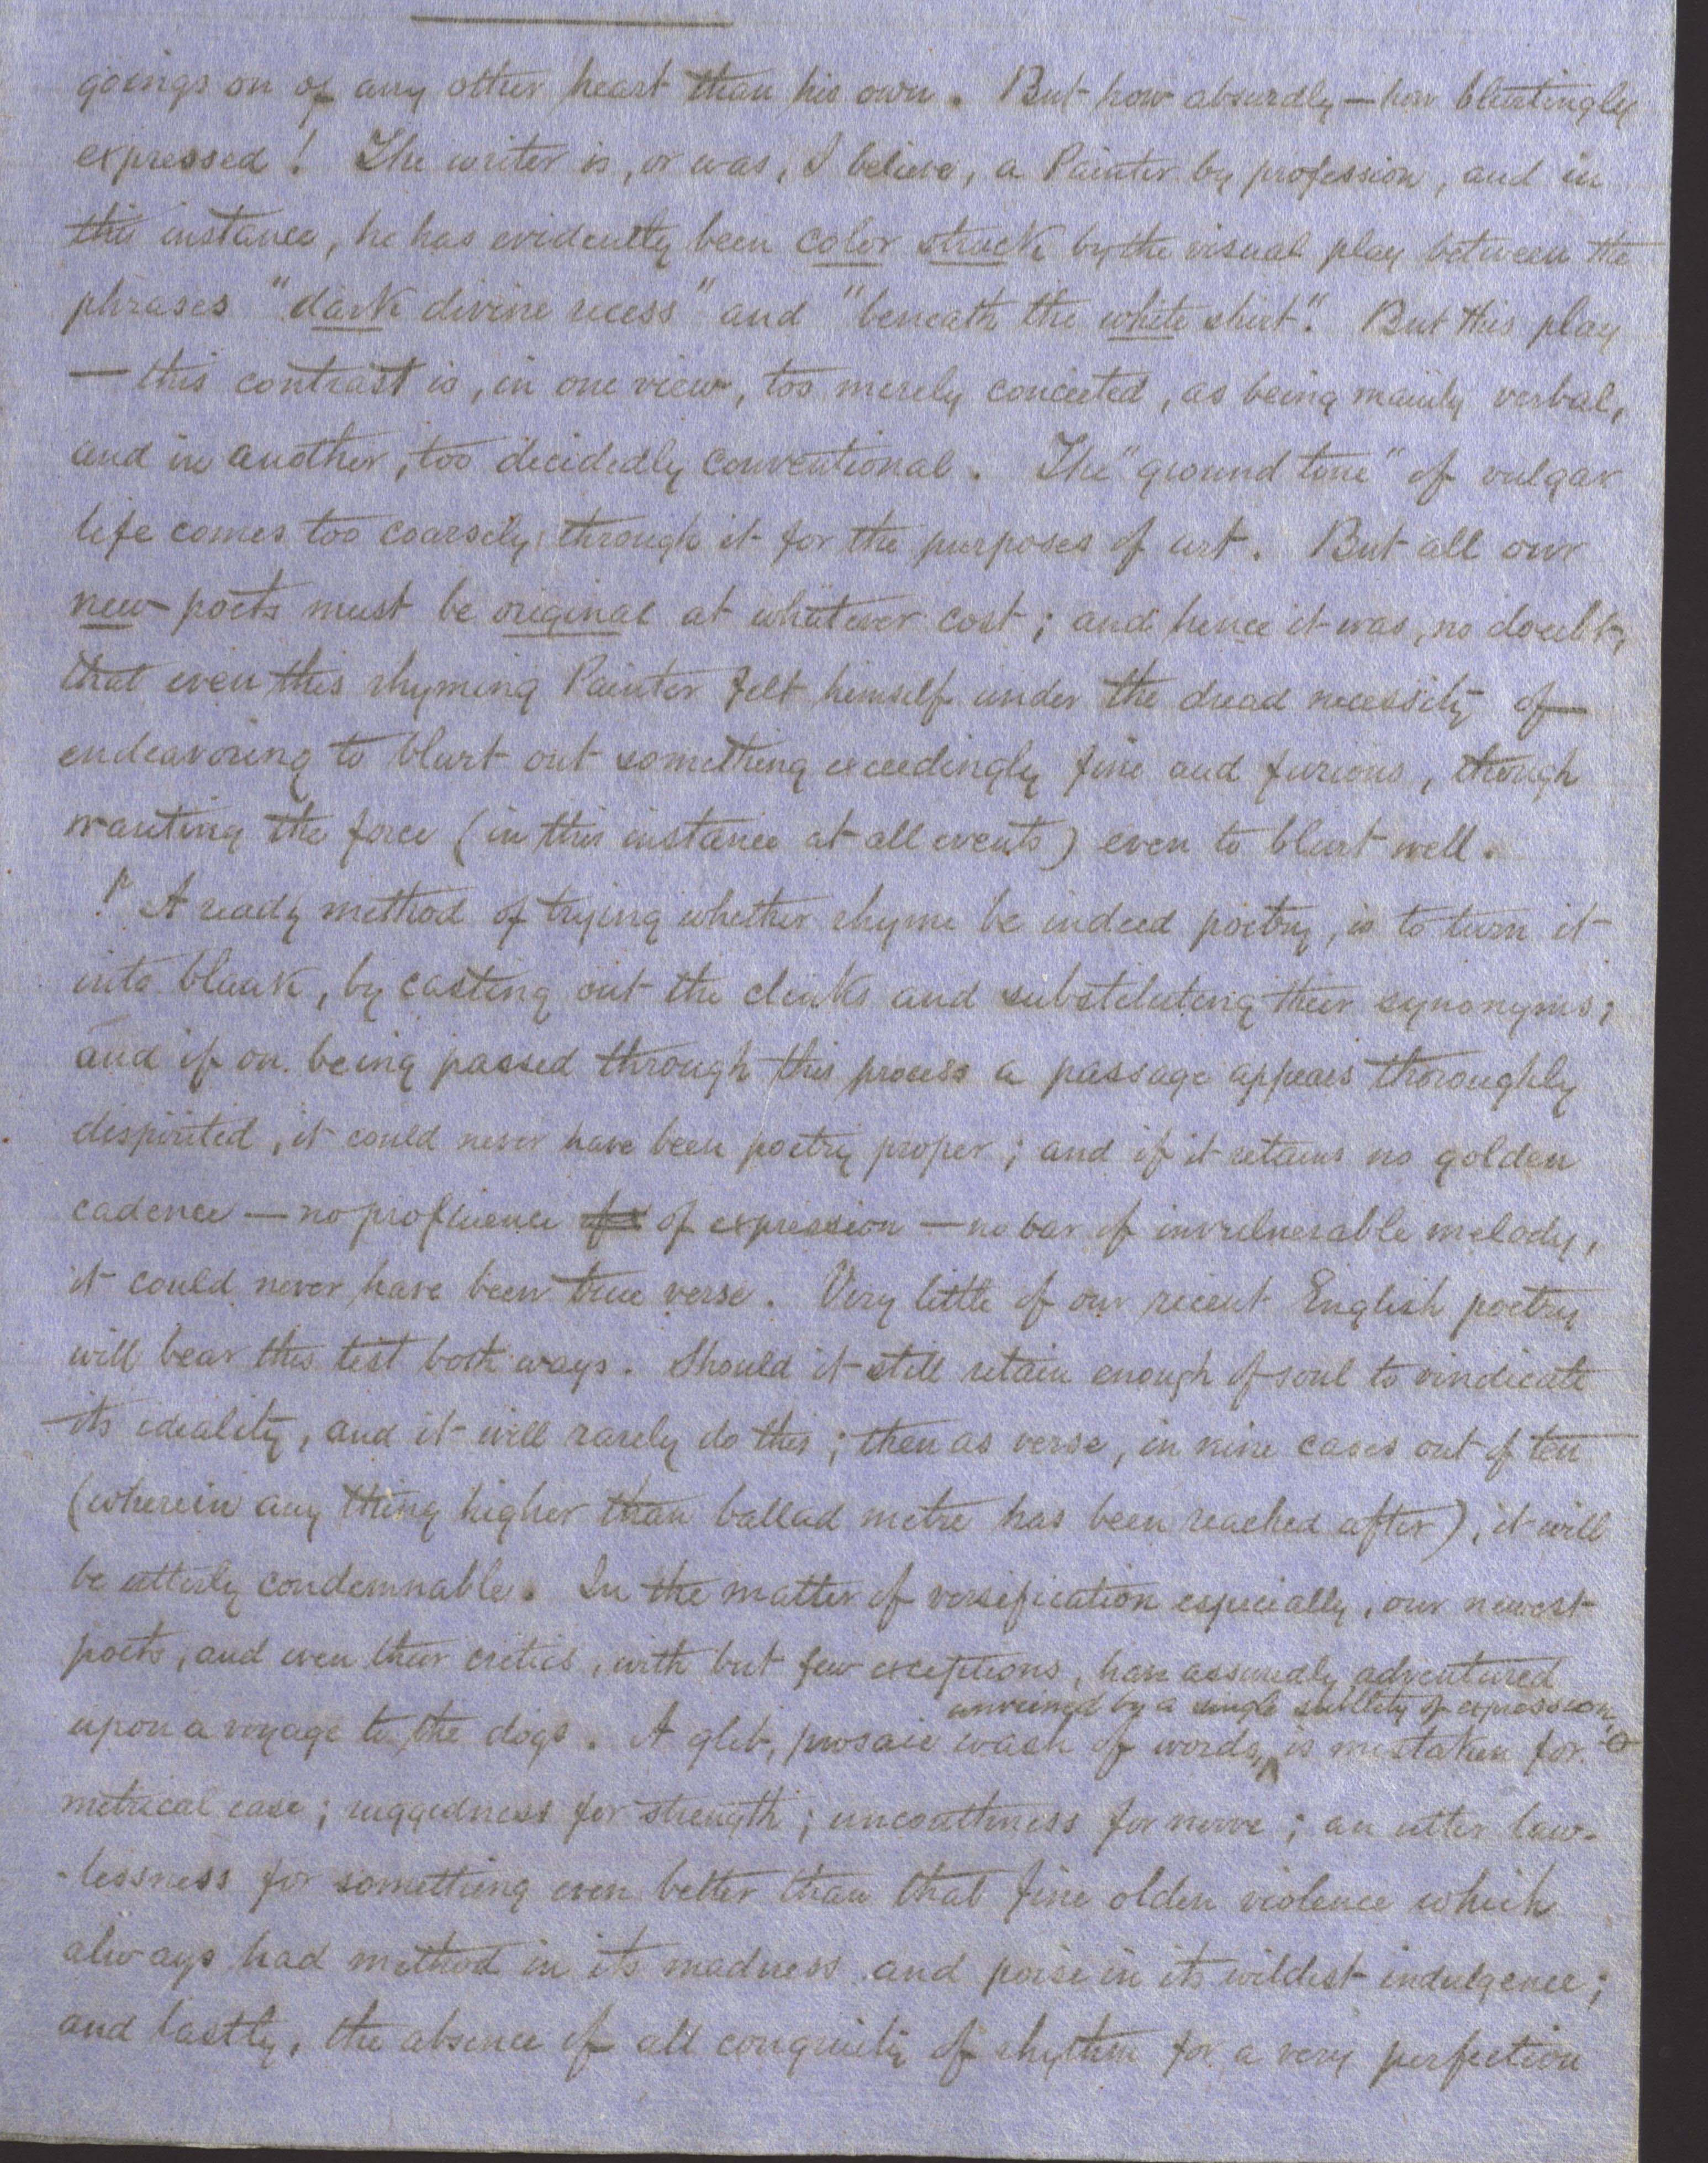 goings on of any other heart than his own. But how absurdly — how blurtingly
expressed! The writer is, or was, I believe, a Painter by profession, and in
this instance, he has evidently been color struck by the visual play between the
phrases "dark divine recess" and "beneath the white shirt". But this play
— this contrast is, in one view, too merely conceited, as being mainly verbal,
and in another, too decidedly conventional. The "ground tone" of vulgar
life comes too coarsely through it for the purposes of art. But all our
new poets must be original at whatever cost; and hence it was, no doubt,
that even this rhyming Painter felt himself under the dread necessity of
endeavoring to blurt out something exceedingly fine and furious, though
wanting the force (in this instance at all events) even to blurt well.
A ready method of trying whether rhyme be indeed poetry, is to turn it
into blank, by casting out the clinks and substituting their synonyms;
and if on being passed through this process a passage appears thoroughly
dispirited, it could never have been poetry proper; and if it retains no golden
cadence — no profluence of expression — no bar of invulnerable melody,
it could never have been true verse. Very little of our recent English poetry
will bear this test both ways. Should it still retain enough of soul to vindicate
its ideality, and it will rarely do this; then as verse, in nine cases out of ten
(wherein any thing higher than ballad metre has been reached after), it will
be utterly condemnable. In the matter of versification especially, our newest
poets, and even their critics, with but few exceptions, have assuredly adventured
unveined by a single subtlety of expression,
upon a voyage to the dogs. A glib, prosaic wash of words, is mistaken for
metrical ease; ruggedness for strength; uncouthness for nerve; an utter law-
-lessness for something even better than that fine olden violence which
always had method in its madness and poise in its wildest indulgence;
and lastly, the absence of all congruity of rhythm for a very perfection